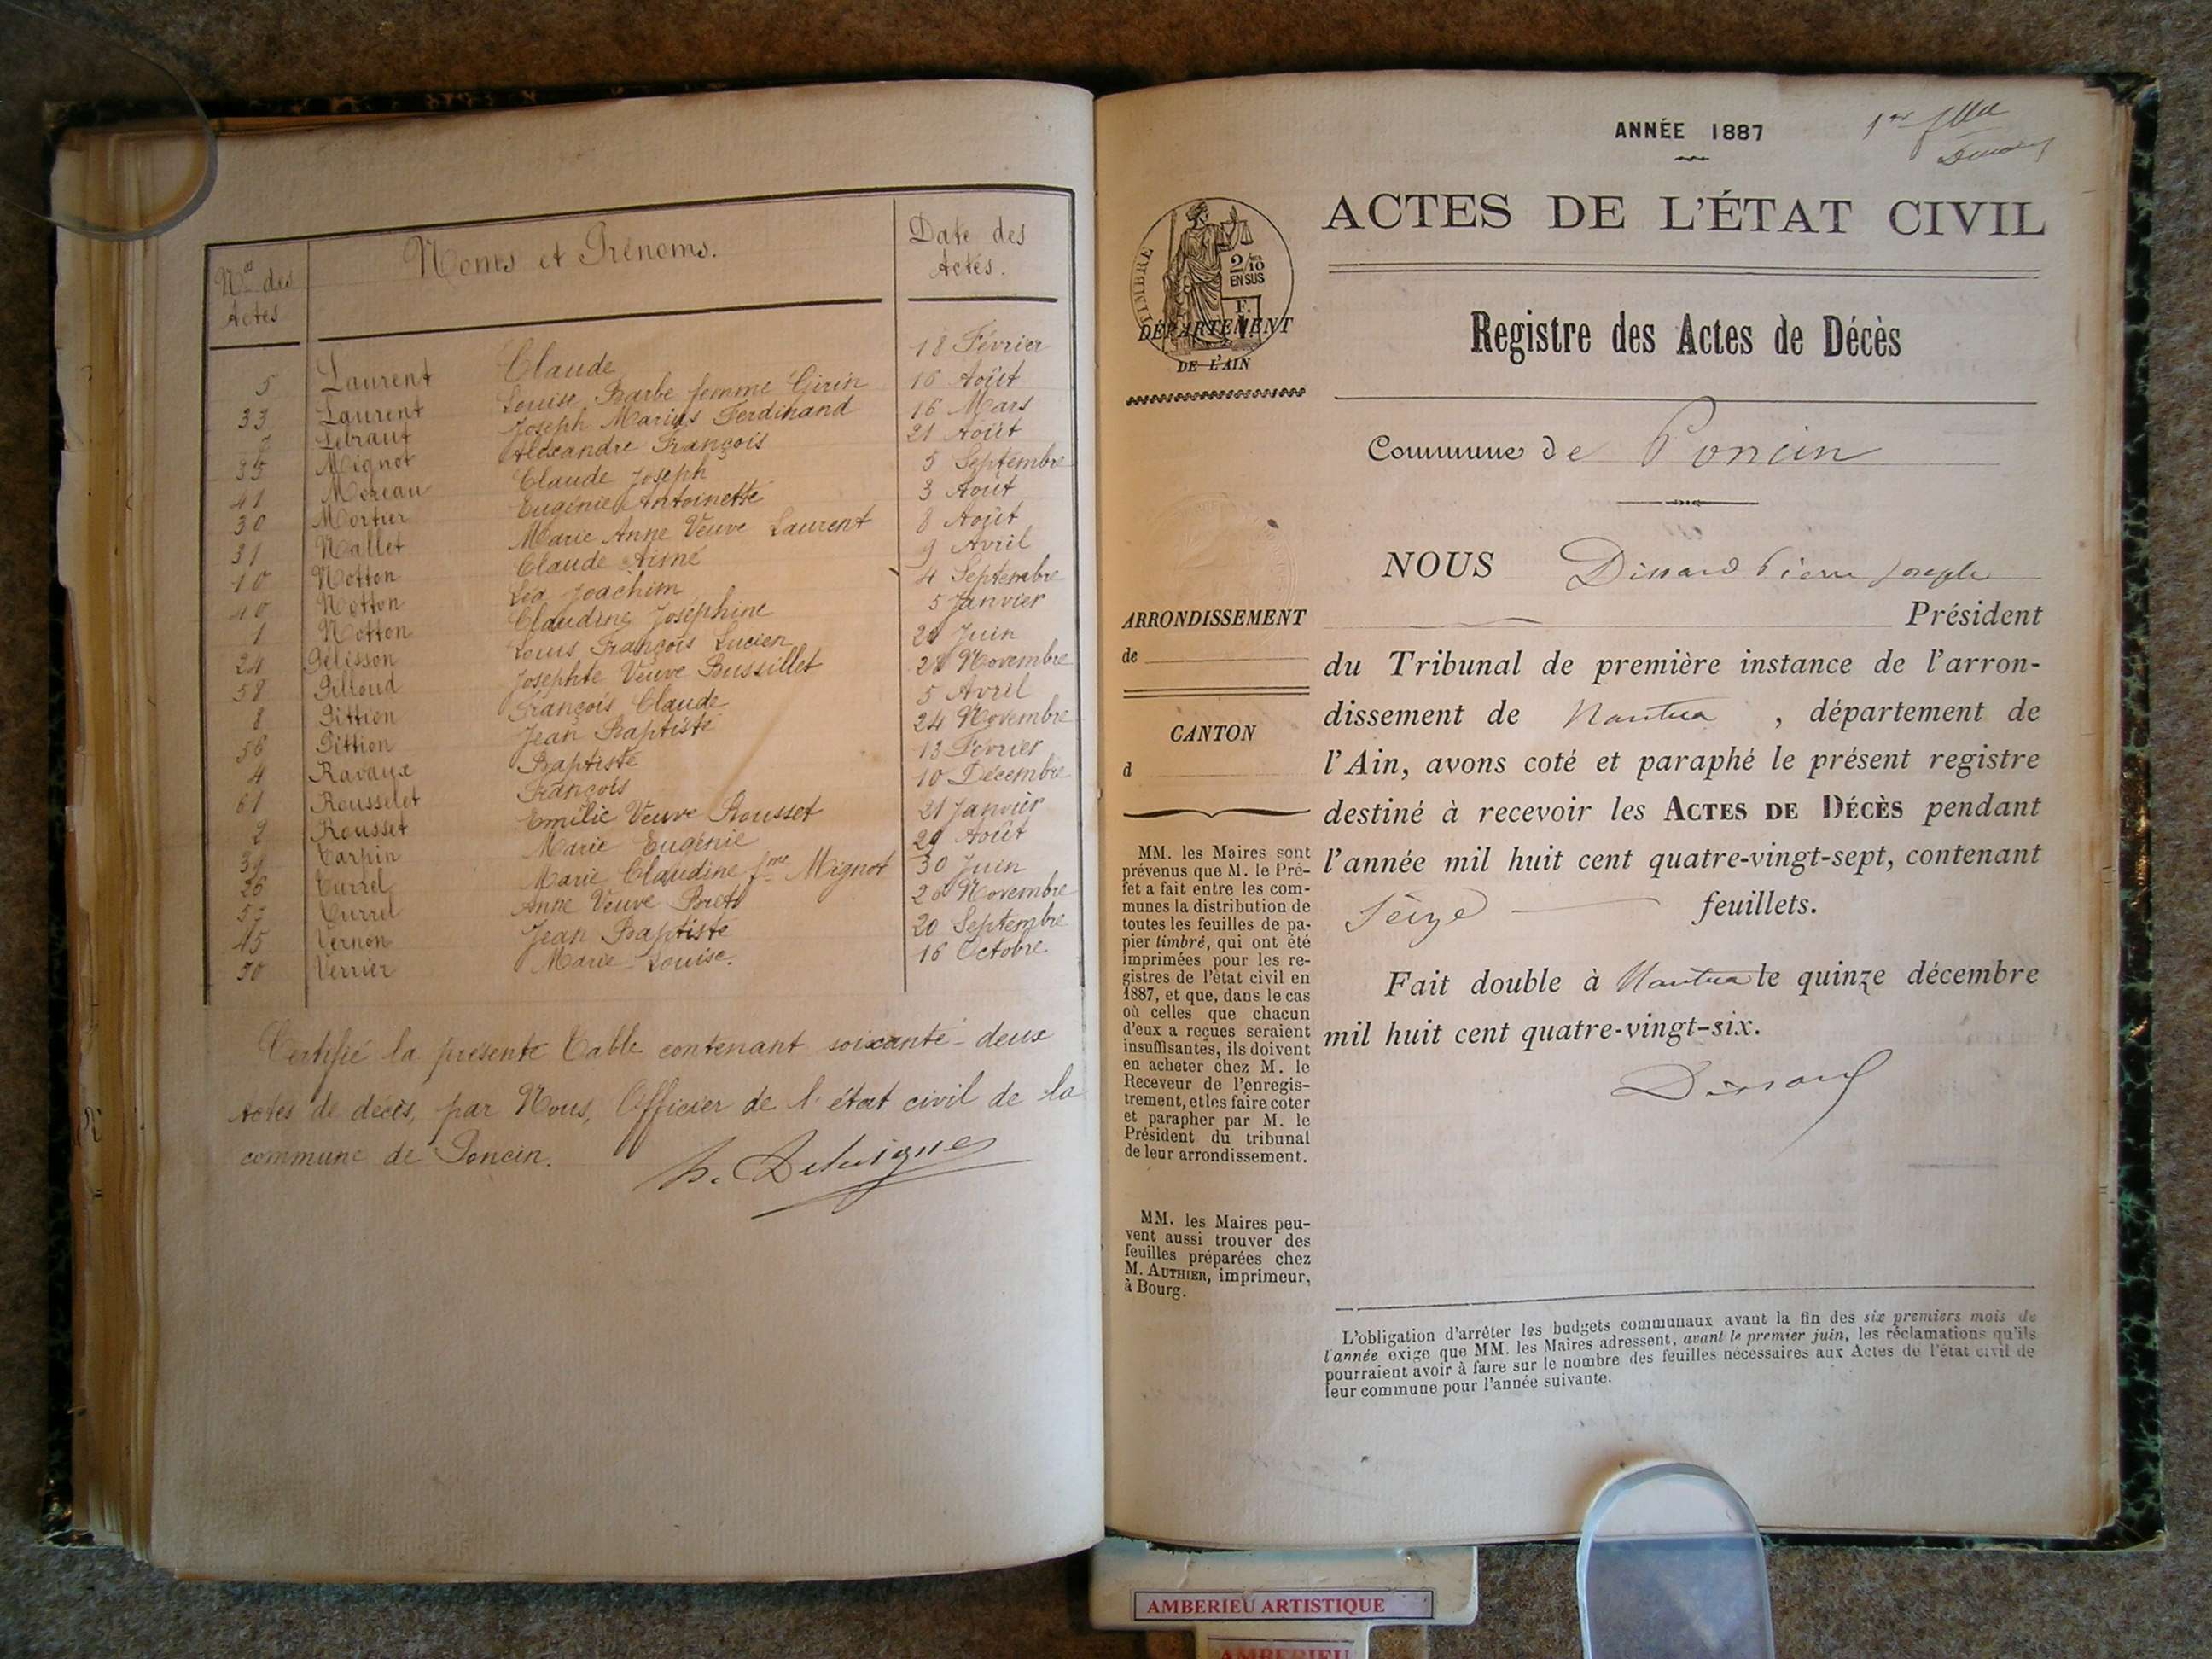 Nos des Actes | Noms et Prénoms. | Date des Actes.
5 Laurent Claude 18 Février
33 Laurent Louise Barbe femme Girin 16 Août
7 Lebraut Joseph Marius Ferdinand 16 Mars
35 Mignot Alexandre François 21 Août
41 Moreau Claude Joseph 5 Septembre
30 Mortier Eugénie Antoinette 3 Août
31 Nallet Marie Anne Veuve Laurent 8 Août
10 Notton Claude Aimé 9 Avril
40 Notton Léa Joachim 4 Septembre
1 Notton Claudine Joséphine 5 Janvier
24 Pélisson Louis François Lucien Juin
58 Pilloud Josephte Veuve Bussillet Novembre
8 Pittion François Claude 5 Avril
56 Pittion Jean Baptiste 24 Novembre
4 Ravaux Baptiste 13 Février
61 Rousselet François 10 Décembre
2 Rousset Emilie Veuve Rousset 21 Janvier
Tarpin Marie Eugénie 29 Août
26 Turrel Marie Claudine fme Mignot 30 Juin
57 Turrel Anne Veuve Novembre
45 Vernon Jean Baptiste 20 Septembre
50 Verrier Marie-Louise. 16 Octobre
Certifié la présente Table contenant soixante-deux
Actes de décès, par Nous, Officier de l'état civil de la
commune de Poncin.
ANNÉE 1887
1er
ACTES DE L'ÉTAT CIVIL
TIMBRE
2/10
EN SUS
F.
DÉPARTEMENT
DE L'AIN
Registre des Actes de Décès
Commune de Poncin
NOUS Dissard Pierre Joseph
Président
du Tribunal de première instance de l'arron-
dissement de Nantua , département de
l'Ain, avons coté et paraphé le présent registre
destiné à recevoir les ACTES DE DÉCÈS pendant
l'année mil huit cent quatre-vingt-sept, contenant
Seize feuillets.
Fait double à Nantua le quinze décembre
mil huit cent quatre-vingt-six.
Dissard
ARRONDISSEMENT
de
CANTON
d
MM. les Maires sont
prévenus que M. le Pré-
fet a fait entre les com-
munes la distribution de
toutes les feuilles de pa-
pier timbré, qui ont été
imprimées pour les re-
gistres de l'état civil en
1887, et que, dans le cas
où celles que chacun
d'eux a reçues seraient
insuffisantes, ils doivent
en acheter chez M. le
Receveur de l'enregis-
trement, et les faire coter
et parapher par M. le
Président du tribunal
de leur arrondissement.
MM. les Maires peu-
vent aussi trouver des
feuilles préparées chez
M. AUTHIER, imprimeur,
à Bourg.
L'obligation d'arrêter les budgets communaux avant la fin des six premiers mois de
l'année exige que MM. les Maires adressent, avant le premier juin, les réclamations qu'ils
pourraient avoir à faire sur le nombre des feuilles nécessaires aux Actes de l'état civil de
leur commune pour l'année suivante.
AMBERIEU ARTISTIQUE
AMBERIEU